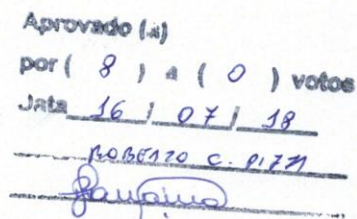 Aprovado (a)
por ( 8 ) a ( 0 ) votos
Data 16 / 07 / 18
ROBERTO C.